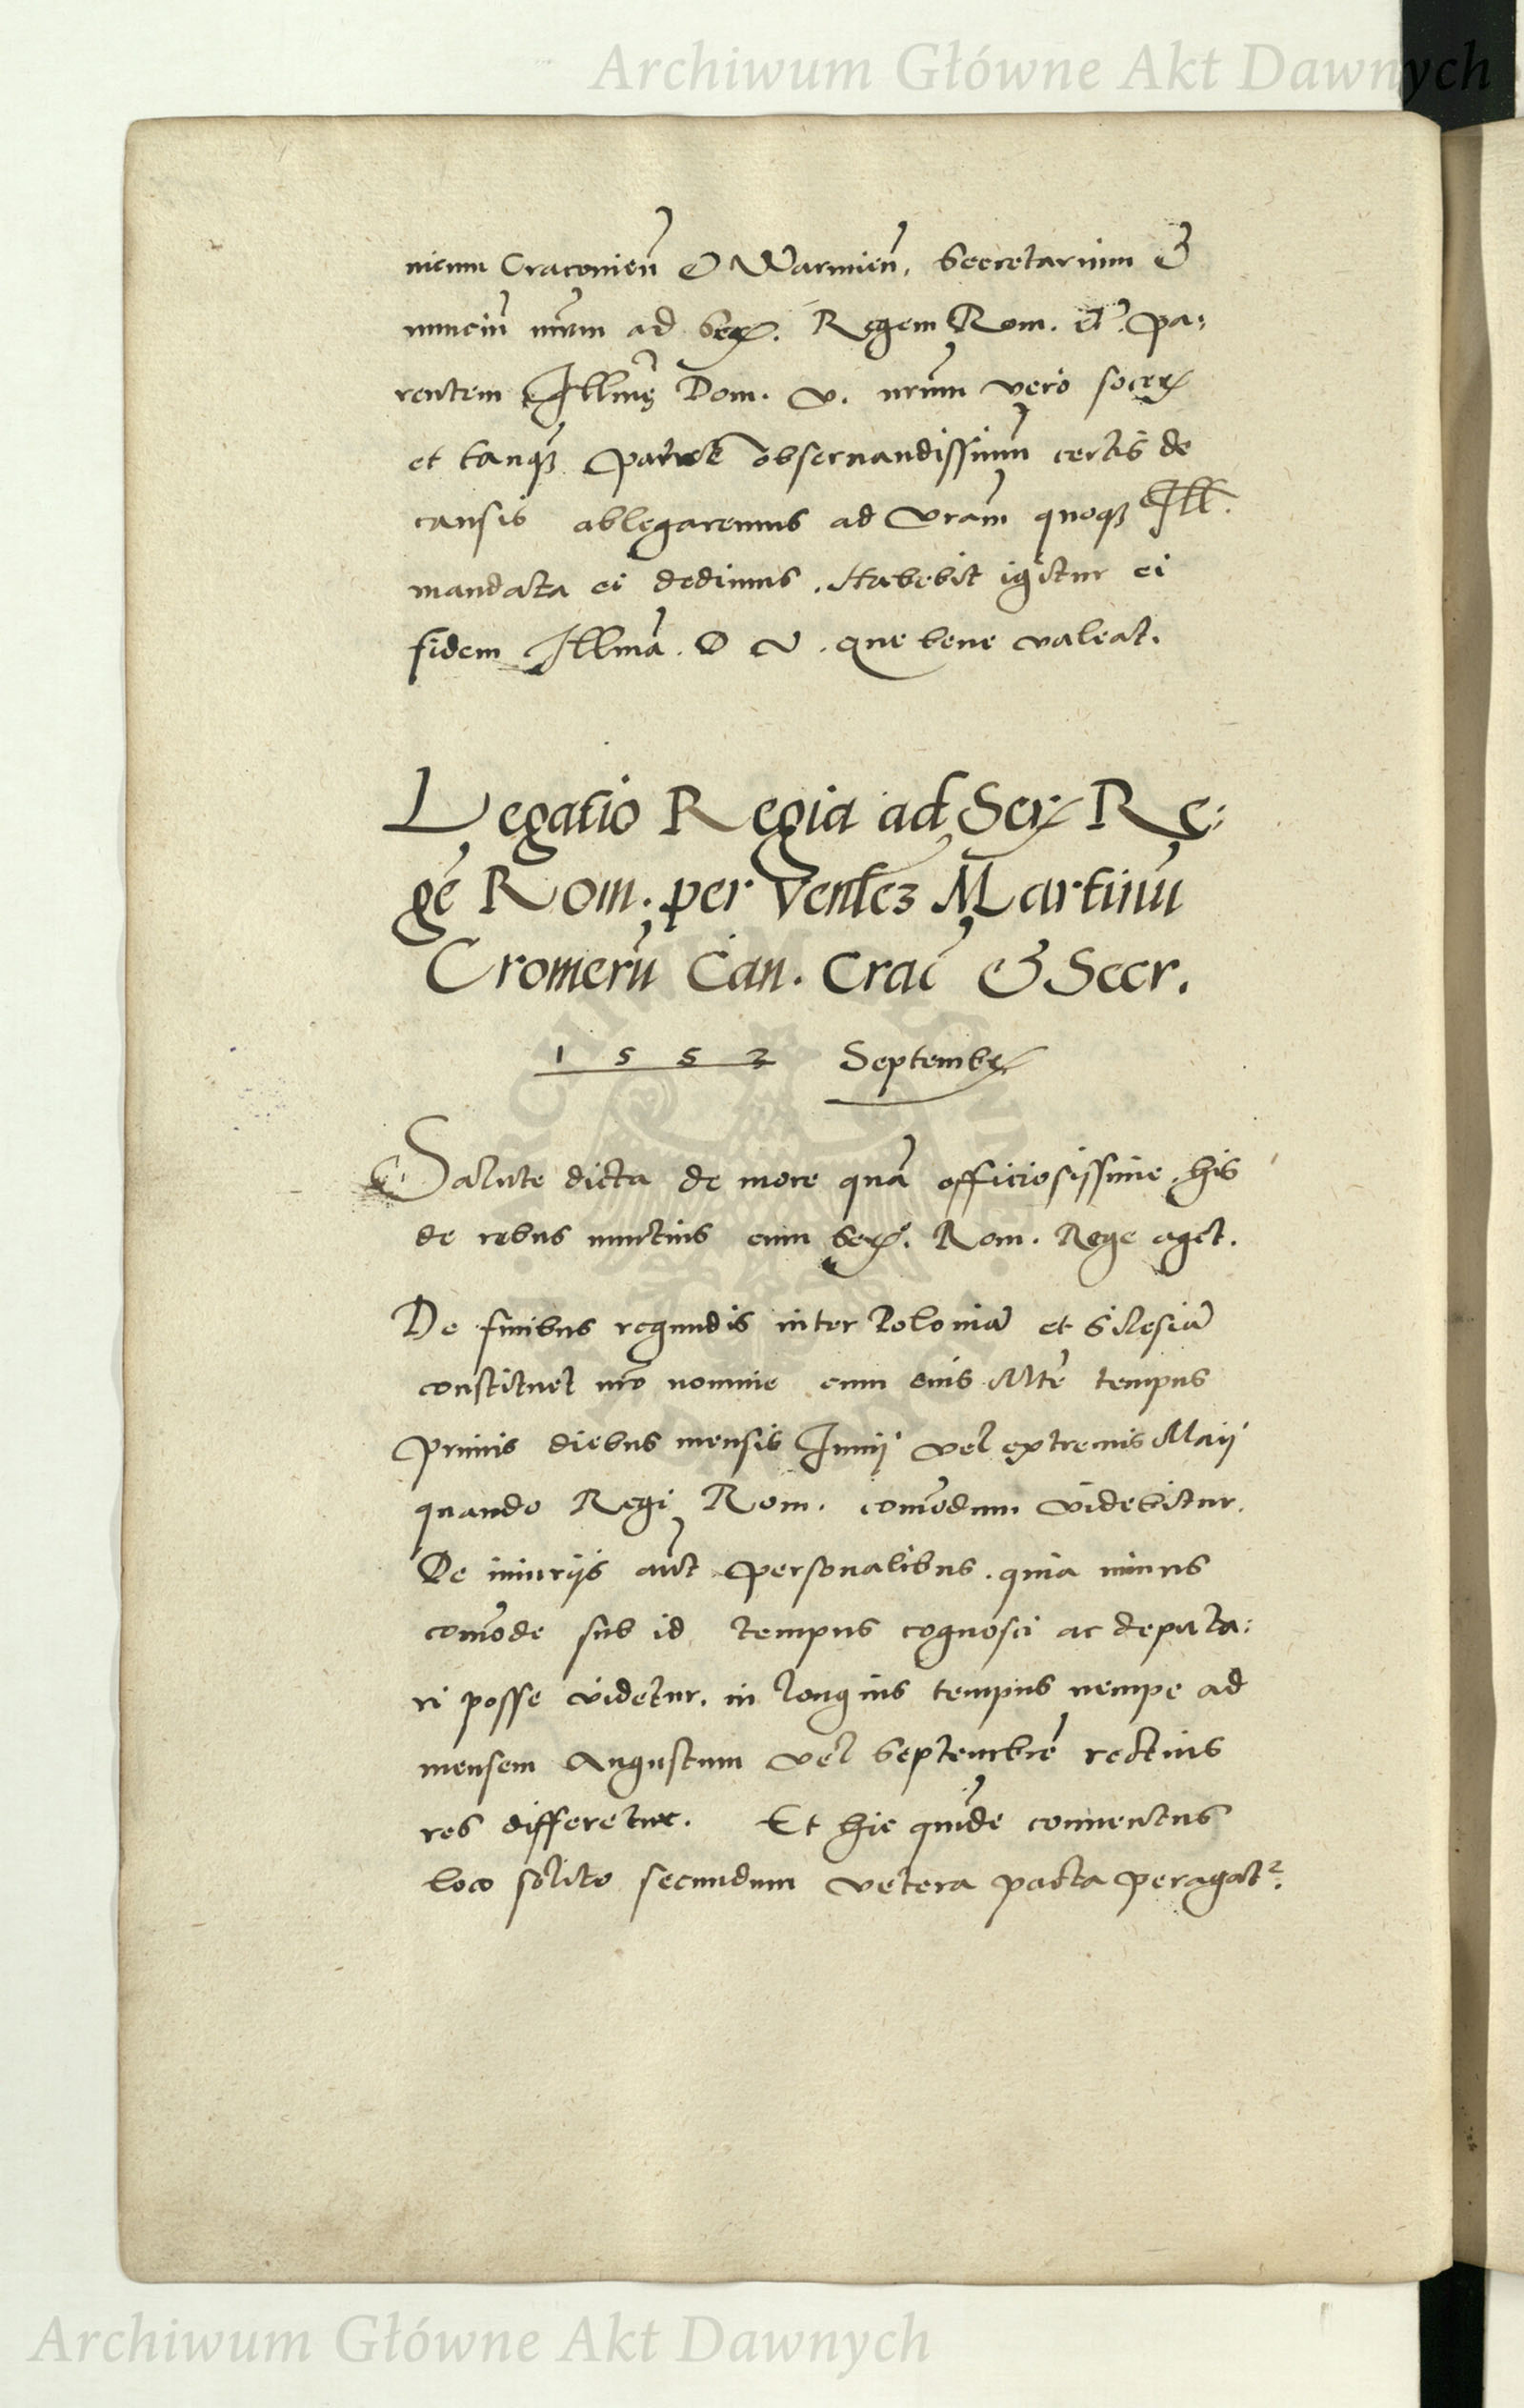 Archiwum Główne Akt Dawnych
nicum Cracovien̄ & Warmien̄, Secretarium &
nunciū nr̄um ad Ser. Regem Rom. etc̄. pa:
rentem Illmę Dom. V. nr̄um vero socer
et tanqꝫ patrē observandissimum certis de
causis ablegaremus ad Vrām quoqꝫ Ill.
mandata ei dedimus. Habebit igitur ei
fidem Illmā. D V. que bene valeat.
Legatio Regia ad Ser Re:
gē Rom. per Ven̄lez Martinū
Cromerū Can. Crac̄ & Secr.
1552 Septembr
Salute dicta de more quā officiosissime, his
de rebus nuntius cum Ser. Rom. Rege aget.
De finibus regundis inter Poloniā et Silesiā
constituet nr̄o nomine cum eius Mtē tempus
primis diebus mensis Junij vel extremis Maij
quando Regi Rom. com̄odum videbitur.
De iniurijs aūt personalibus, quia minus
com̄ode sub id tempus cognosci ac deputa:
ri posse videtur, in longius tempus nempe ad
mensem Augustum vel Septembrē rectius
res differetur. Et hic quidē conventus
loco solito secundum vetera pacta peragat².
Archiwum Główne Akt Dawnych